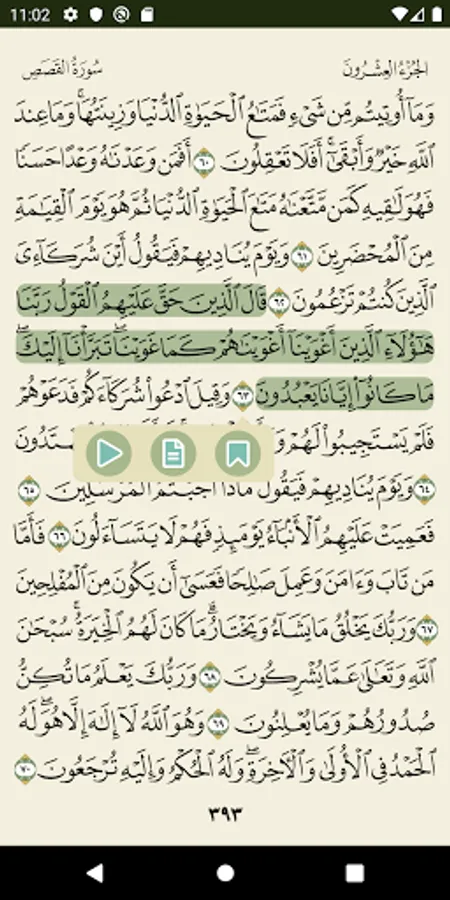 11:02
الجُزْءُ العِشْرُونَ
سُورَةُ القَصَصِ
وَمَآ أُوتِيتُم مِّن شَىْءٍ فَمَتَٰعُ ٱلْحَيَوٰةِ ٱلدُّنْيَا وَزِينَتُهَا ۚ وَمَا عِندَ
ٱللَّهِ خَيْرٌ وَأَبْقَىٰٓ ۚ أَفَلَا تَعْقِلُونَ ٦٠ أَفَمَن وَعَدْنَٰهُ وَعْدًا حَسَنًا
فَهُوَ لَٰقِيهِ كَمَن مَّتَّعْنَٰهُ مَتَٰعَ ٱلْحَيَوٰةِ ٱلدُّنْيَا ثُمَّ هُوَ يَوْمَ ٱلْقِيَٰمَةِ
مِنَ ٱلْمُحْضَرِينَ ٦١ وَيَوْمَ يُنَادِيهِمْ فَيَقُولُ أَيْنَ شُرَكَآءِىَ
ٱلَّذِينَ كُنتُمْ تَزْعُمُونَ ٦٢ قَالَ ٱلَّذِينَ حَقَّ عَلَيْهِمُ ٱلْقَوْلُ رَبَّنَا
هَٰٓؤُلَآءِ ٱلَّذِينَ أَغْوَيْنَآ أَغْوَيْنَٰهُمْ كَمَا غَوَيْنَا ۖ تَبَرَّأْنَآ إِلَيْكَ ۖ
مَا كَانُوٓا۟ إِيَّانَا يَعْبُدُونَ ٦٣ وَقِيلَ ٱدْعُوا۟ شُرَكَآءَكُمْ فَدَعَوْهُمْ
فَلَمْ يَسْتَجِيبُوا۟ لَهُمْ
٦٤ وَيَوْمَ يُنَادِيهِمْ فَيَقُولُ مَاذَآ أَجَبْتُمُ ٱلْمُرْسَلِينَ ٦٥
فَعَمِيَتْ عَلَيْهِمُ ٱلْأَنۢبَآءُ يَوْمَئِذٍ فَهُمْ لَا يَتَسَآءَلُونَ ٦٦ فَأَمَّا
مَن تَابَ وَءَامَنَ وَعَمِلَ صَٰلِحًا فَعَسَىٰٓ أَن يَكُونَ مِنَ ٱلْمُفْلِحِينَ
٦٧ وَرَبُّكَ يَخْلُقُ مَا يَشَآءُ وَيَخْتَارُ ۗ مَا كَانَ لَهُمُ ٱلْخِيَرَةُ ۚ سُبْحَٰنَ
ٱللَّهِ وَتَعَٰلَىٰ عَمَّا يُشْرِكُونَ ٦٨ وَرَبُّكَ يَعْلَمُ مَا تُكِنُّ
صُدُورُهُمْ وَمَا يُعْلِنُونَ ٦٩ وَهُوَ ٱللَّهُ لَآ إِلَٰهَ إِلَّا هُوَ ۖ لَهُ
ٱلْحَمْدُ فِى ٱلْأُولَىٰ وَٱلْءَاخِرَةِ ۖ وَلَهُ ٱلْحُكْمُ وَإِلَيْهِ تُرْجَعُونَ ٧٠
٣٩٣